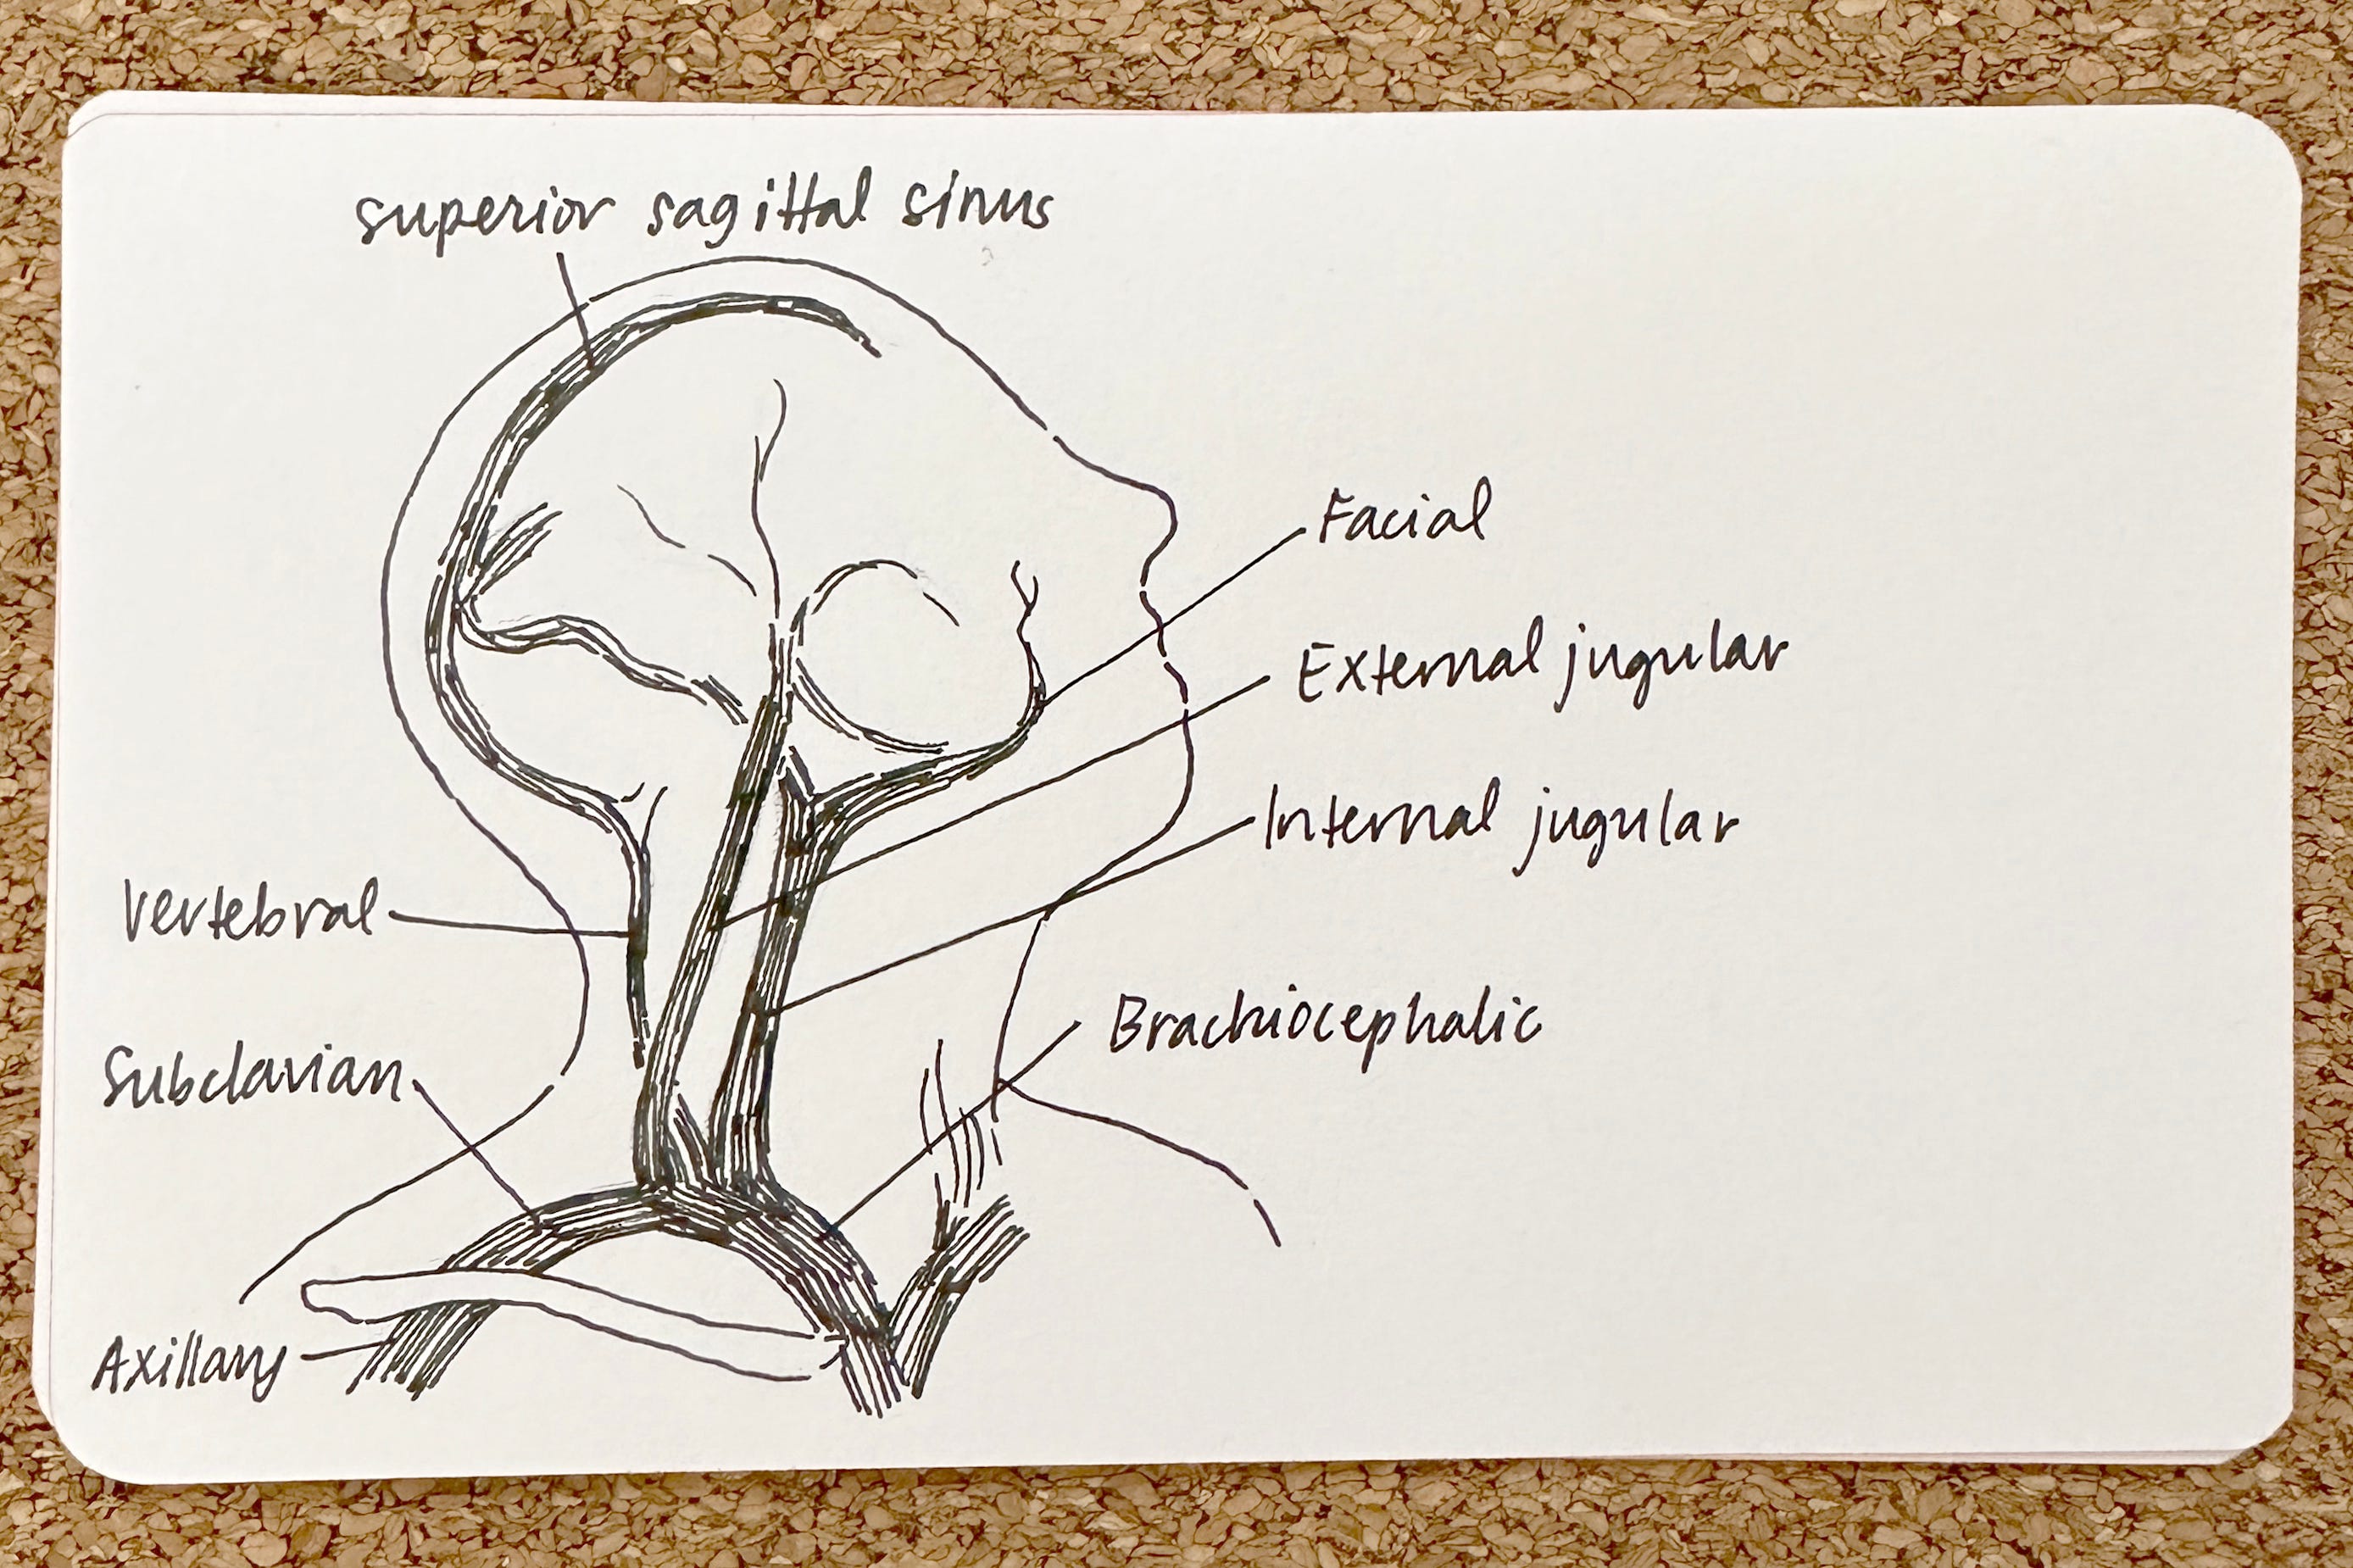 superior sagittal sinus
Facial
External jugular
Internal jugular
Vertebral
Brachiocephalic
Subclavian
Axillary